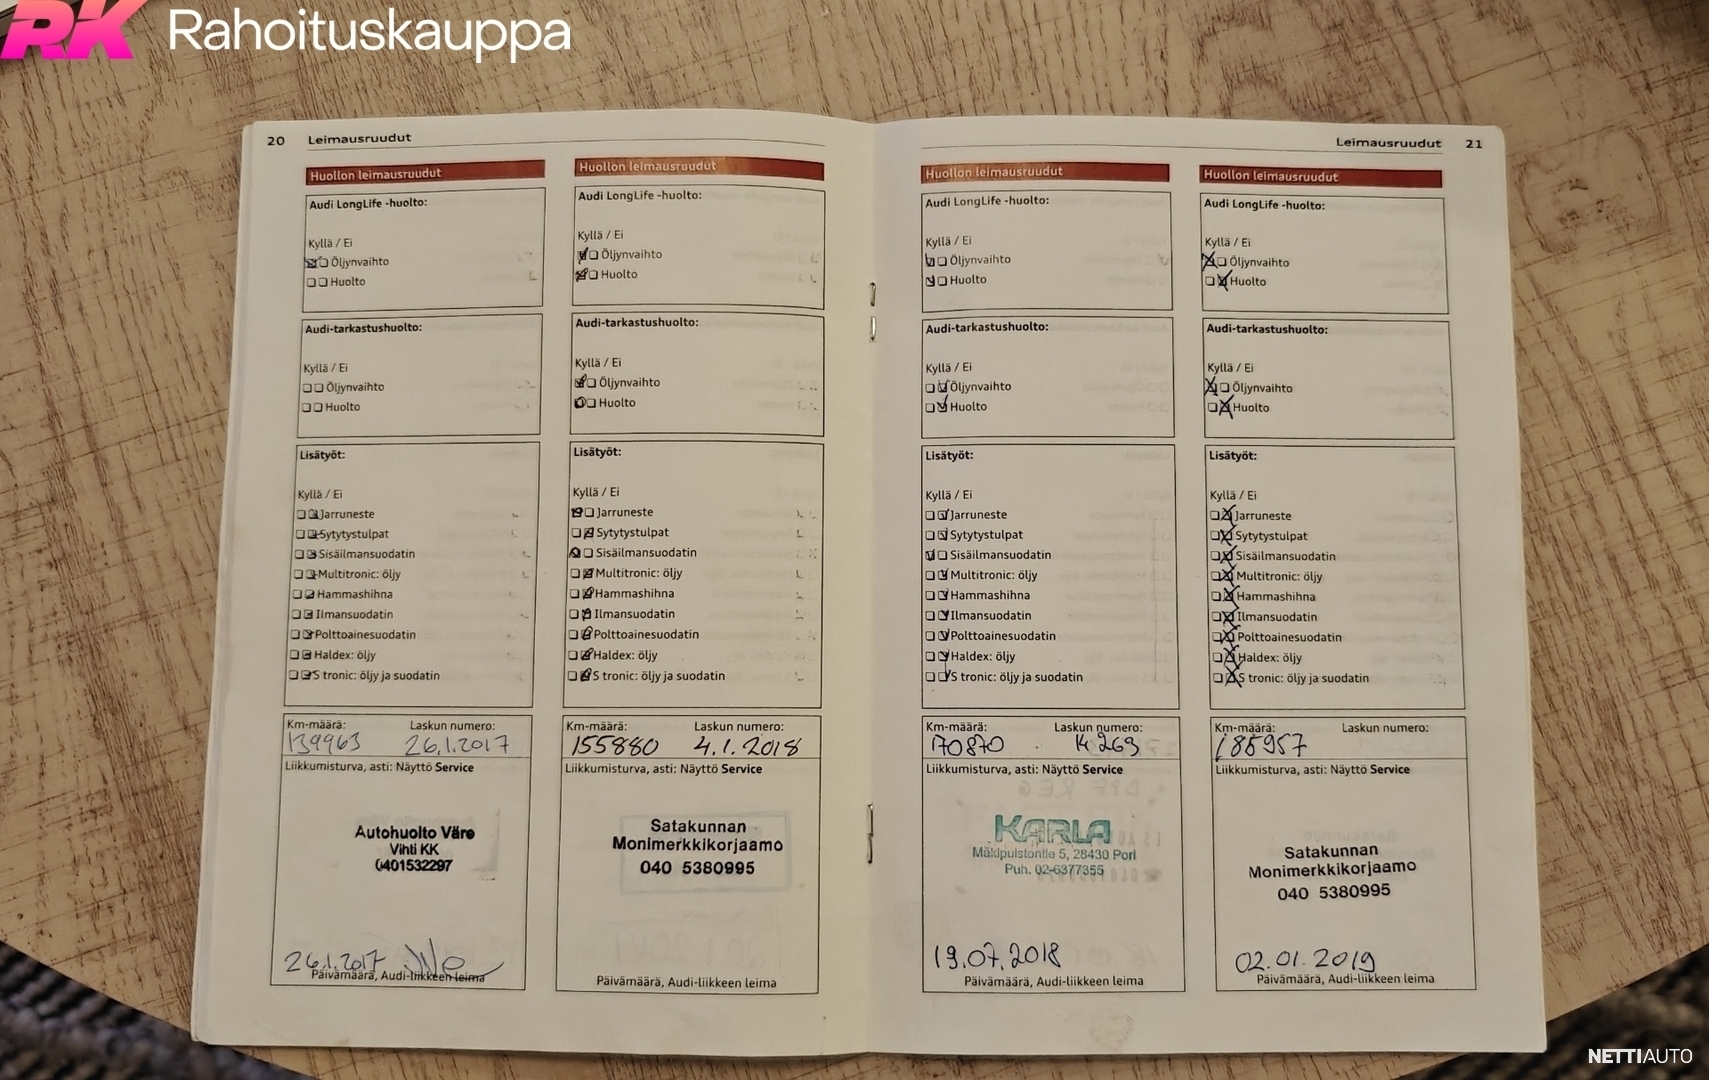 RK Rahoituskauppa
20 Leimausruudut
Huollon leimausruudut
Audi LongLife -huolto:
Kyllä / Ei
Öljynvaihto
Huolto
Audi-tarkastushuolto:
Kyllä / Ei
Öljynvaihto
Huolto
Lisätyöt:
Kyllä / Ei
Jarruneste
Sytytystulpat
Sisäilmansuodatin
Multitronic: öljy
Hammashihna
Ilmansuodatin
Polttoainesuodatin
Haldex: öljy
S tronic: öljy ja suodatin
Km-määrä: Laskun numero:
139963 26.1.2017
Liikkumisturva, asti: Näyttö Service
Autohuolto Väre
Vihti KK
0401532297
26.1.2017
Päivämäärä, Audi-liikkeen leima
Huollon leimausruudut
Audi LongLife -huolto:
Kyllä / Ei
Öljynvaihto
Huolto
Audi-tarkastushuolto:
Kyllä / Ei
Öljynvaihto
Huolto
Lisätyöt:
Kyllä / Ei
Jarruneste
Sytytystulpat
Sisäilmansuodatin
Multitronic: öljy
Hammashihna
Ilmansuodatin
Polttoainesuodatin
Haldex: öljy
S tronic: öljy ja suodatin
Km-määrä: Laskun numero:
155880 4.1.2018
Liikkumisturva, asti: Näyttö Service
Satakunnan
Monimerkkikorjaamo
040 5380995
Päivämäärä, Audi-liikkeen leima
Leimausruudut 21
Huollon leimausruudut
Audi LongLife -huolto:
Kyllä / Ei
Öljynvaihto
Huolto
Audi-tarkastushuolto:
Kyllä / Ei
Öljynvaihto
Huolto
Lisätyöt:
Kyllä / Ei
Jarruneste
Sytytystulpat
Sisäilmansuodatin
Multitronic: öljy
Hammashihna
Ilmansuodatin
Polttoainesuodatin
Haldex: öljy
S tronic: öljy ja suodatin
Km-määrä: Laskun numero:
170870 14263
Liikkumisturva, asti: Näyttö Service
KARLA
Mäkipuistontie 5, 28430 Pori
Puh. 02-6377355
19.07.2018
Päivämäärä, Audi-liikkeen leima
Huollon leimausruudut
Audi LongLife -huolto:
Kyllä / Ei
Öljynvaihto
Huolto
Audi-tarkastushuolto:
Kyllä / Ei
Öljynvaihto
Huolto
Lisätyöt:
Kyllä / Ei
Jarruneste
Sytytystulpat
Sisäilmansuodatin
Multitronic: öljy
Hammashihna
Ilmansuodatin
Polttoainesuodatin
Haldex: öljy
S tronic: öljy ja suodatin
Km-määrä: Laskun numero:
185957
Liikkumisturva, asti: Näyttö Service
Satakunnan
Monimerkkikorjaamo
040 5380995
02.01.2019
Päivämäärä, Audi-liikkeen leima
NETTIAUTO